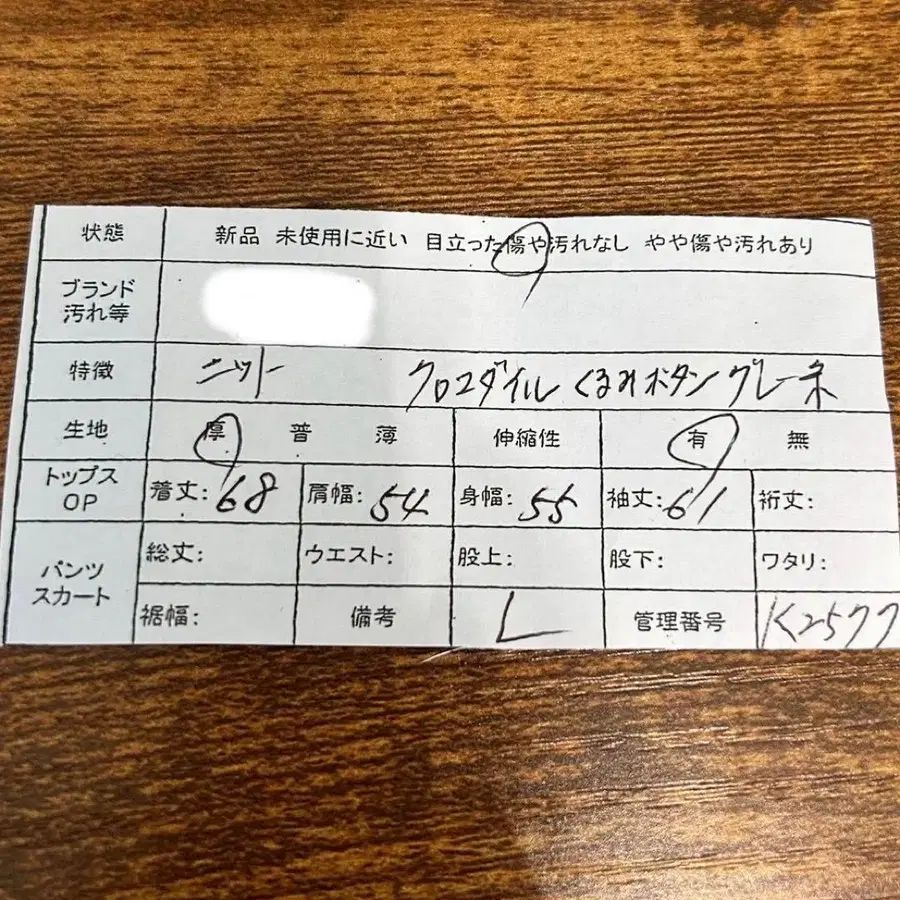 状態 新品 未使用に近い 目立った傷や汚れなし やや傷や汚れあり
ブランド
汚れ等
特徴 ニット クロコダイル くるみボタン グレーネ
生地 厚 普 薄 伸縮性 有 無
トップス
OP
着丈:68 肩幅:54 身幅:55 袖丈:61 裄丈:
パンツ
スカート
総丈: ウエスト: 股上: 股下: ワタリ:
裾幅: 備考 L 管理番号 K2577